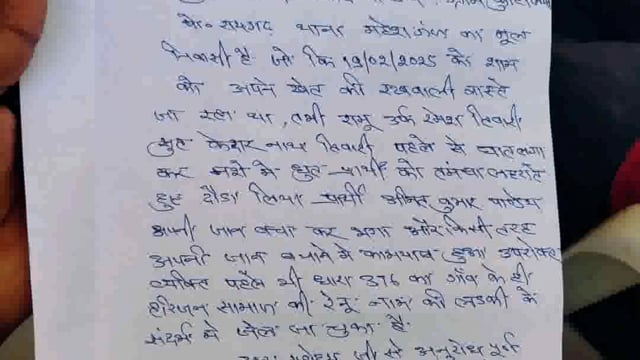 पो॰ रायगढ़ थाना महेशगंज का मूल
निवासी है जो कि 19/02/2025 को शाम
को अपने खेत की रखवाली वास्ते
जा रहा था, तभी रामू उर्फ रमेश तिवारी
सुत केदार नाथ तिवारी पहले से घात लगा
कर नशे मे धुत प्रार्थी को तमंचा लहराते
हुए दौड़ा लिया प्रार्थी अमित कुमार पाण्डेय
अपनी जान बचा कर भागा और किसी तरह
अपनी जान बचाने मे कामयाब हुआ उपरोक्त
व्यक्ति पहले भी धारा 376 का गाँव के ही
हरिजन सामाज की रेनू नाम की लडकी के
संदर्भ मे जेल जा चुका है
जी से अनुरोध पूर्व